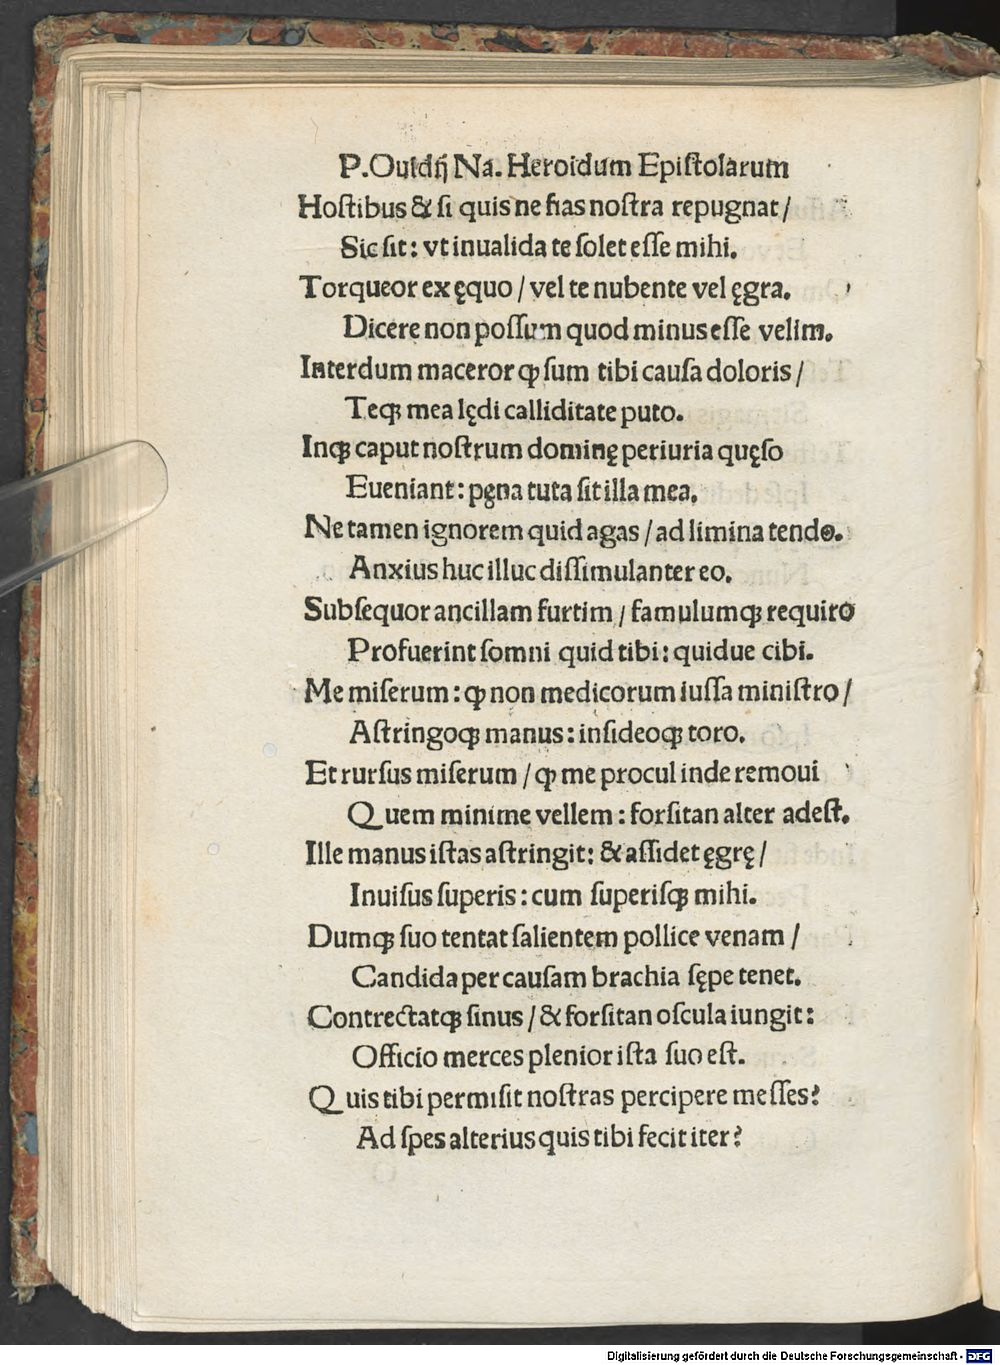 P.Ouidĳ Na. Heroidum Epiſtolarum
Hoſtibus & ſi quis ne fias noſtra repugnat /
Sic ſit: vt inualida te ſolet eſſe mihi.
Torqueor ex ęquo / vel te nubente vel ęgra.
Dicere non poſſum quod minus eſſe velim.
Interdum maceror ꝙ ſum tibi cauſa doloris /
Teqꝫ mea lędi calliditate puto.
Inqꝫ caput noſtrum dominę periuria quęſo
Eueniant: pęna tuta ſit illa mea.
Ne tamen ignorem quid agas / ad limina tendo.
Anxius huc illuc diſſimulanter eo.
Subſequor ancillam furtim / famulumqꝫ requiro
Profuerint ſomni quid tibi: quidue cibi.
Me miſerum: ꝙ non medicorum iuſſa miniſtro /
Aſtringoqꝫ manus: inſideoqꝫ toro.
Et rurſus miſerum / ꝙ me procul inde remoui
Quem minime vellem: forſitan alter adeſt.
Ille manus iſtas aſtringit: & aſſidet ęgrę /
Inuiſus ſuperis: cum ſuperiſqꝫ mihi.
Dumqꝫ ſuo tentat ſalientem pollice venam /
Candida per cauſam brachia ſępe tenet.
Contrectatqꝫ ſinus / & forſitan oſcula iungit:
Officio merces plenior iſta ſuo eſt.
Quis tibi permiſit noſtras percipere meſſes?
Ad ſpes alterius quis tibi fecit iter?
Digitalisierung gefördert durch die Deutsche Forschungsgemeinschaft - DFG